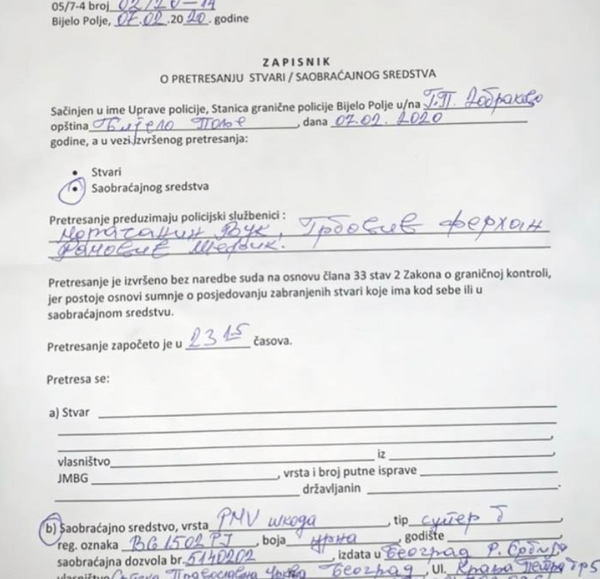 05/7-4 broj 02/20-14
Bijelo Polje, 07.02.2020. godine
ZAPISNIK
O PRETRESANJU STVARI / SAOBRAĆAJNOG SREDSTVA
Sačinjen u ime Uprave policije, Stanica granične policije Bijelo Polje u/na Г.П. Добраково
opština Бијело Поље, dana 07.02.2020
godine, a u vezi izvršenog pretresanja:
• Stvari
• Saobraćajnog sredstva
Pretresanje preduzimaju policijski službenici :
Морачанин Вук, Грбовић Ферхан
Pretresanje je izvršeno bez naredbe suda na osnovu člana 33 stav 2 Zakona o graničnoj kontroli,
jer postoje osnovi sumnje o posjedovanju zabranjenih stvari koje ima kod sebe ili u
saobraćajnom sredstvu.
Pretresanje započeto je u 23 15 časova.
Pretresa se:
a) Stvar
vlasništvo iz
JMBG , vrsta i broj putne isprave
državljanin .
b) Saobraćajno sredstvo, vrsta PMV шкода , tip супер б
reg. oznaka BG 1502 PJ , boja црна , godište ,
saobraćajna dozvola br. 5140202 , izdata u Београд Р. Србија
vlasništvo Православна Црква Београд , Ul. Краља Петра бр 5